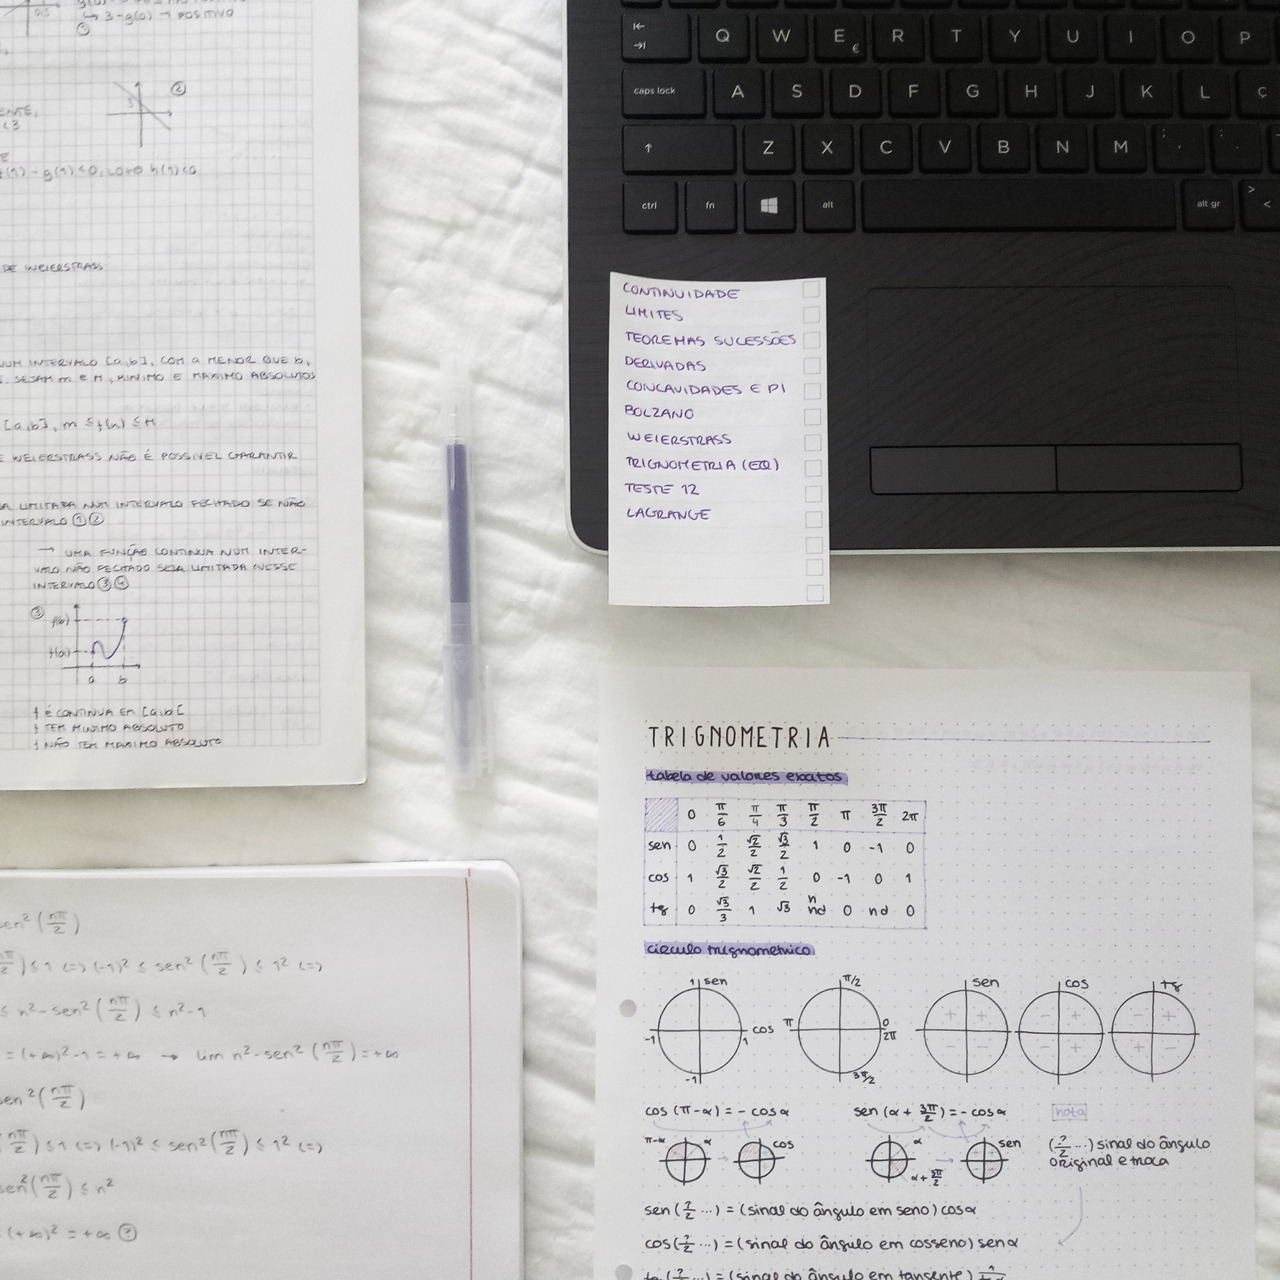 ↳ 3-g(0) → POSITIVO
②
3
<3
-g(1)<0, LOGO h(1)<0
DE WEIERSTRASS
NUM INTERVALO [a,b], COM a MENOR QUE b,
SEJAM m e M, MINIMO E MAXIMO ABSOLUTOS
[a,b], m ≤ f(x) ≤ M
WEIERSTRASS NÃO É POSSIVEL GARANTIR
LIMITADA NUM INTERVALO FECHADO SE NÃO
INTERVALO ① ②
→ UMA FUNÇÃO CONTINUA NUM INTER-
VALO NÃO FECHADO SEJA LIMITADA NESSE
INTERVALO ③ ④
③
f(b)
f(a)
a b
f É CONTINUA EM [a,b[
f TEM MINIMO ABSOLUTO
f NÃO TEM MAXIMO ABSOLUTO
Q W E € R T Y U I O P
caps lock A S D F G H J K L Ç
↑ Z X C V B N M ; , : .
ctrl fn alt alt gr > <
CONTINUIDADE
LIMITES
TEOREMAS SUCESSÕES
DERIVADAS
CONCAVIDADES E PI
BOLZANO
WEIERSTRASS
TRIGNOMETRIA (EQ)
TESTE 12
LAGRANGE
sen²(nπ/2)
≤ 1 (=) (-1)² ≤ sen²(nπ/2) ≤ 1² (=)
≤ n²-sen²(nπ/2) ≤ n²-1
= (+∞)²-1 = +∞ → lim n²-sen²(nπ/2) = +∞
sen²(nπ/2)
nπ/2) ≤ 1 (=) (-1)² ≤ sen²(nπ/2) ≤ 1² (=)
sen²(nπ/2) ≤ n²
(+∞)² = +∞
TRIGNOMETRIA
tabela de valores exatos
0 π/6 π/4 π/3 π/2 π 3π/2 2π
sen 0 1/2 √2/2 √3/2 1 0 -1 0
cos 1 √3/2 √2/2 1/2 0 -1 0 1
tg 0 √3/3 1 √3 nd 0 nd 0
círculo trignometrico
1 sen π/2 sen cos tg
+ + - + - +
-1 cos 1 π 0 2π
- - - + + -
-1 3π/2
cos(π-α) = -cosα sen(α+3π/2) = -cosα nota
π-α α → cos α → sen (?/2 ...) sinal do ângulo
α+3π/2 original e troca
sen(?/2 ...) = (sinal do ângulo em seno) cosα
cos(?/2 ...) = (sinal do ângulo em cosseno) senα
tg(?/2 ...) = (sinal do ângulo em tangente)